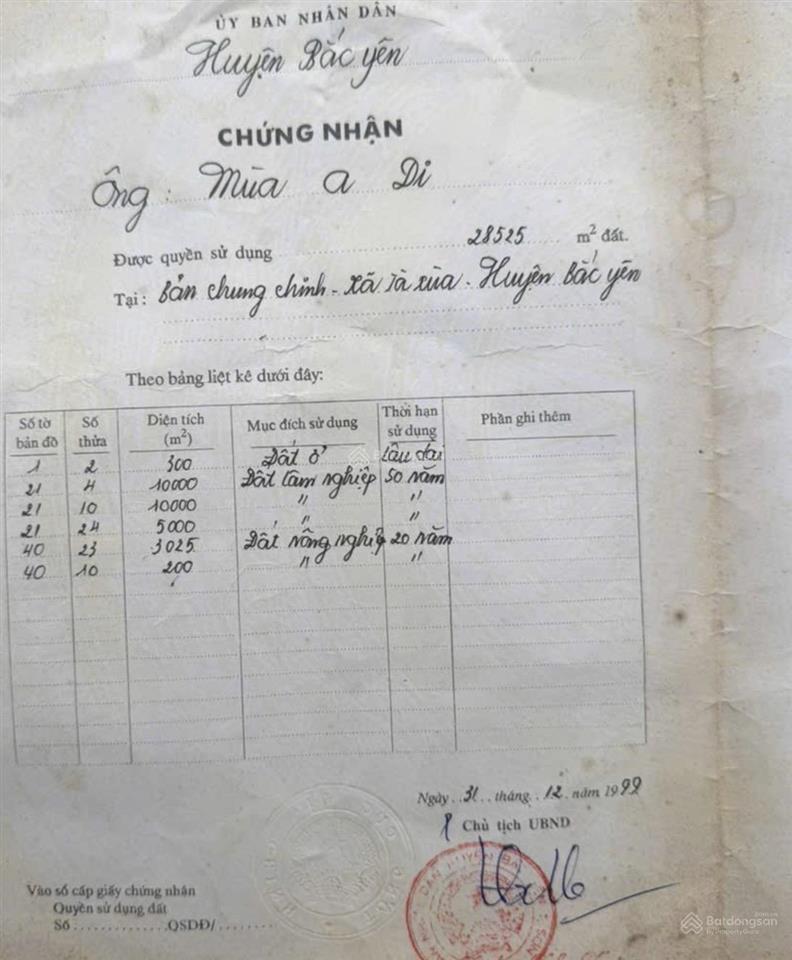 ỦY BAN NHÂN DÂN
Huyện Bắc yên
CHỨNG NHẬN
Ông: Mùa a Di
Được quyền sử dụng 28525 m² đất.
Tại: Bản chung chinh - xã Tà xùa - Huyện Bắc yên
Theo bảng liệt kê dưới đây:
Số tờ bản đồ Số thửa Diện tích (m²) Mục đích sử dụng Thời hạn sử dụng Phần ghi thêm
1 2 300 Đất ở Lâu dài
21 4 10000 Đất lâm nghiệp 50 năm
21 10 10000 " "
21 24 5000 " "
40 23 3025 Đất nông nghiệp 20 năm
40 10 200 " "
Ngày 31 tháng 12 năm 1999
Chủ tịch UBND
Vào sổ cấp giấy chứng nhận
Quyền sử dụng đất
Số: QSDĐ/
Batdongsan
by PropertyGuru